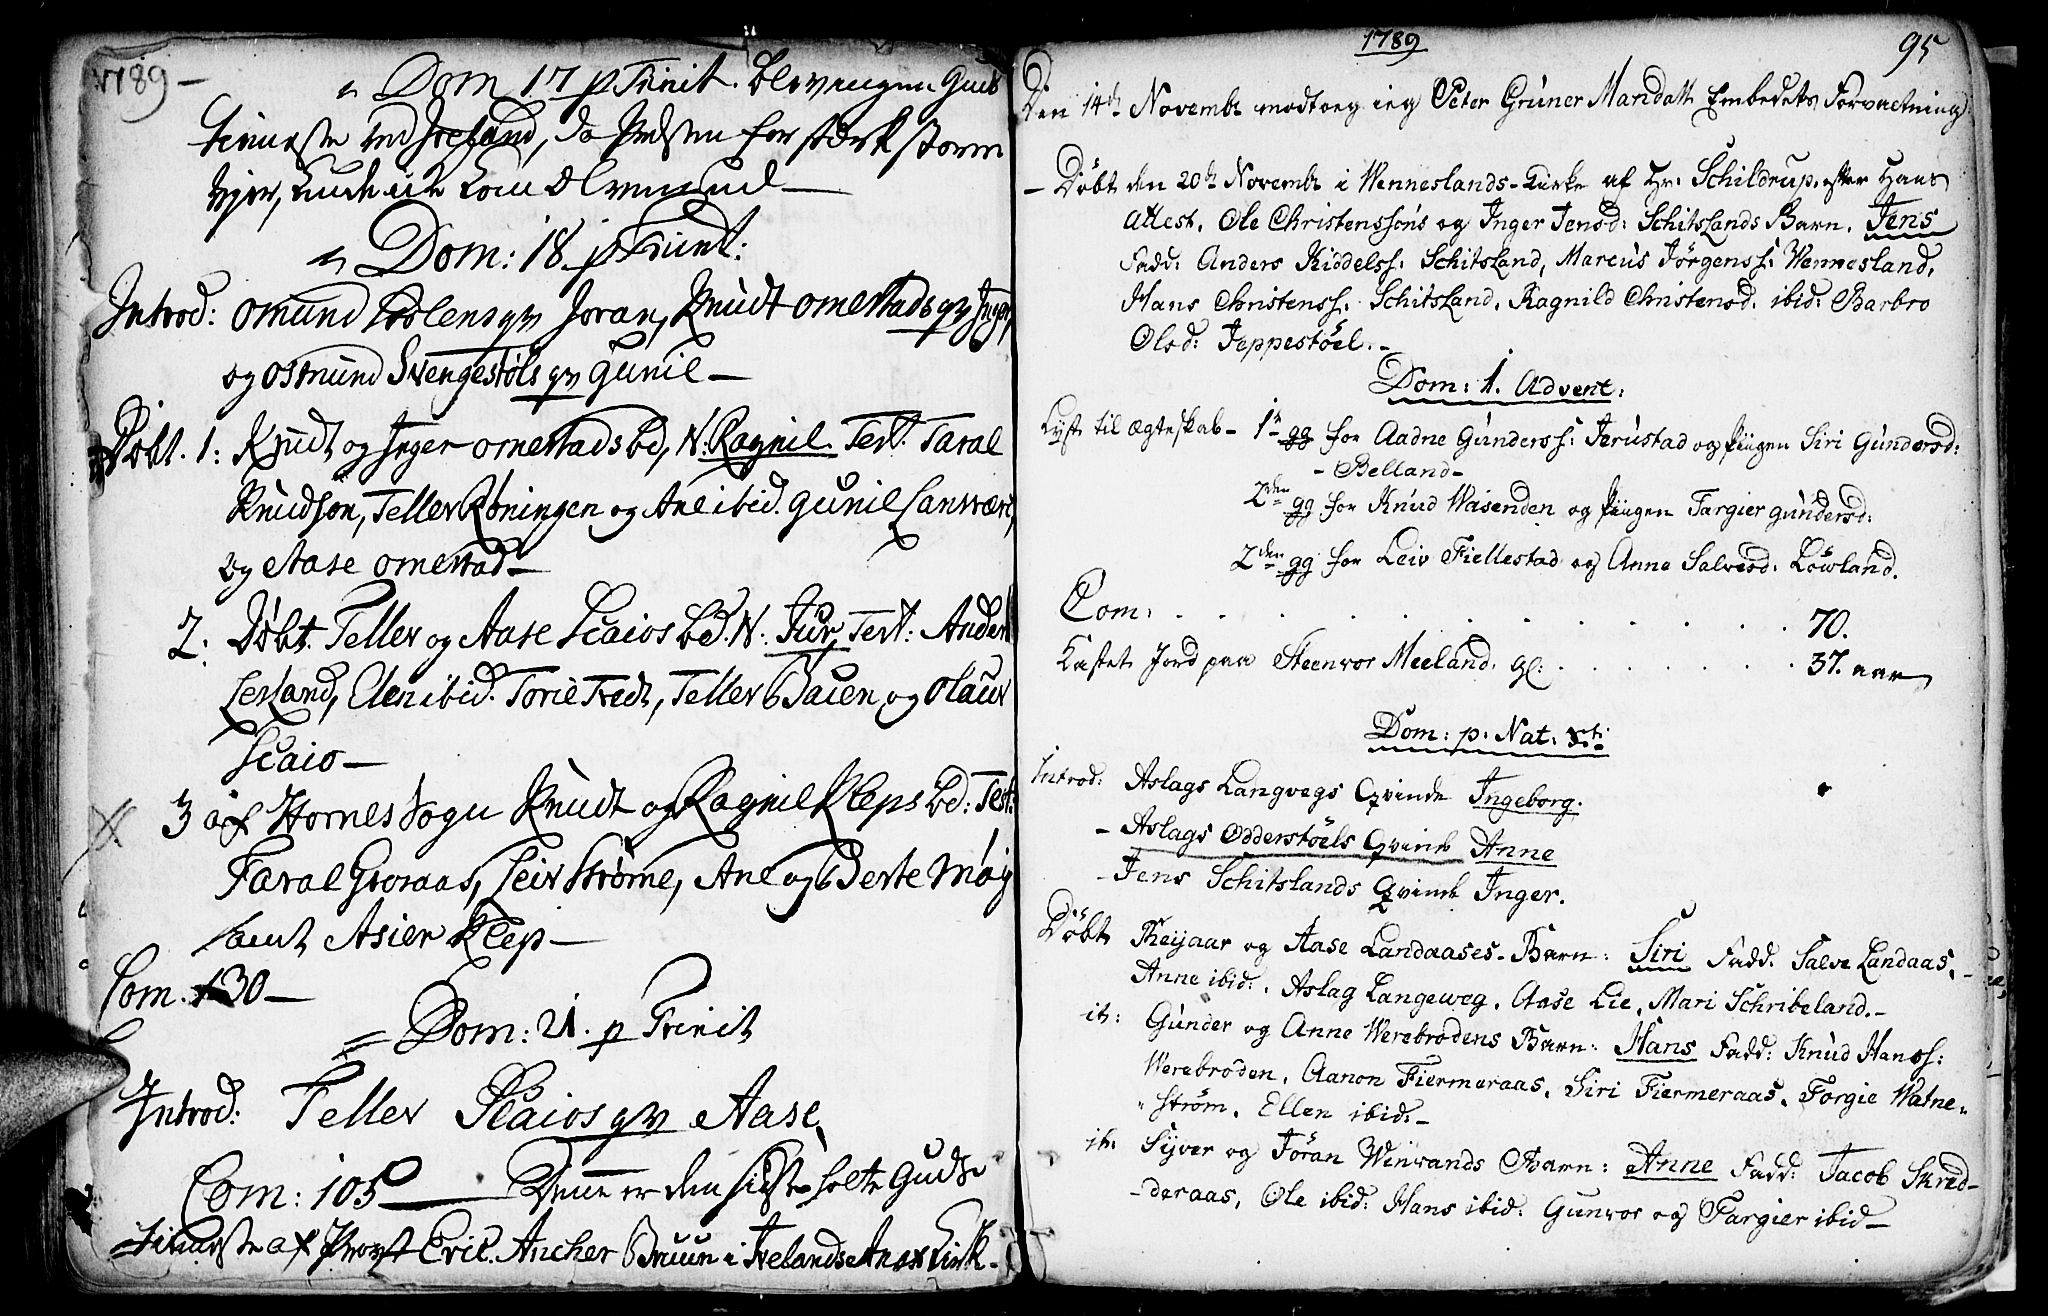 1789 –
Dom 17 p Trinit. blev ingen Guds
tieneste ved Iveland, da Præsten for stærk storm
Dom: 18. p Trinit:
Introd: Omund Holens qv Joran, Knudt Omestads qv Inger,
og Osmund Svengestøls qv Gunil –
Døbt. 1: Knudt og Inger Omestads bd, N: Ragnil. Test: Taral
Knudson, Tellev Røningen og Ane ibid. Gunil
og Aase Omestad –
2: Døbt. Tellev og Aase Scaios bd. N: Jur, Test: Anders
Lesland, Elen ibid. Torie Tvedt, Tellev Bauen og Olauv
Scaio –
3 af Hornes Sogn Knudt og Ragnil Kleps bd: Test:
Taral Groraas, Leiv Strøme, Ane og Berte Møy
samt Asier Klep –
Com. 130 –
Dom: 21. p Trinit
Introd: Tellev Scaios qv Aase.
Com: 105 – Denne er den sidste holte Guds
tieneste af Provst Eric Ancher Bruun i Ivelands Anex Kirk
1789
95
Den 14de Novembr modtog jeg Peter Grüner Mandall Embedets Forvaltning
– Døbt den 20de Novembr i Wenneslands-Kirke af Hr. Schildrup, efter Hans
Attest. Ole Christenssøns og Inger Jensd: Schitslands Barn. Jens
Fadd: Anders Kiddelss: Schitsland, Marcus Jörgenss: Wennesland,
Hans Christenss. Schitsland, Ragnild Christensd. ibid: Barbro
Olsd: Jeppestöel. –
Dom: 1. Advent:
Lyst til ægteskab – 1te gg for Aadne Gunderss: Jerustad og Piigen Siri Gundersd:
– Belland –
2den gg for Knud Wasenden og Piigen Targier Gundersd:
2den gg for Leiv Fiellestad og Anne Salvesd: Löwland.
Com: . . . . . . . . . . 70.
Kastet Jord paa Steenvor Meeland. gl: . . . . . . 37. aar
Dom: p: Nat: Xti:
Introd: Aslags Langvegs Qvinde Ingeborg.
– Aslags Odderstöels Qvinde Anne
– Jens Schitslands Qvinde Inger.
Döbt Theijaar og Aase Landaases-Barn: Siri Fadd. Salve Landaas, –
Anne ibid:, Aslag Langeweg, Aase Lie, Mari Schribeland. –
it: Gunder og Anne Werebrodens Barn: Hans Fadd: Knud Hanss:
Werebroden, Aanon Fiermeraas, Siri Fiermeraas, Torgie Watne-
ström, Ellen ibid: –
it: Syver og Jöran Winrands Barn: Anne Fadd: Jacob Skred-
-deraas, Ole ibid: Hans ibid: Gunvor og Targier ibid –